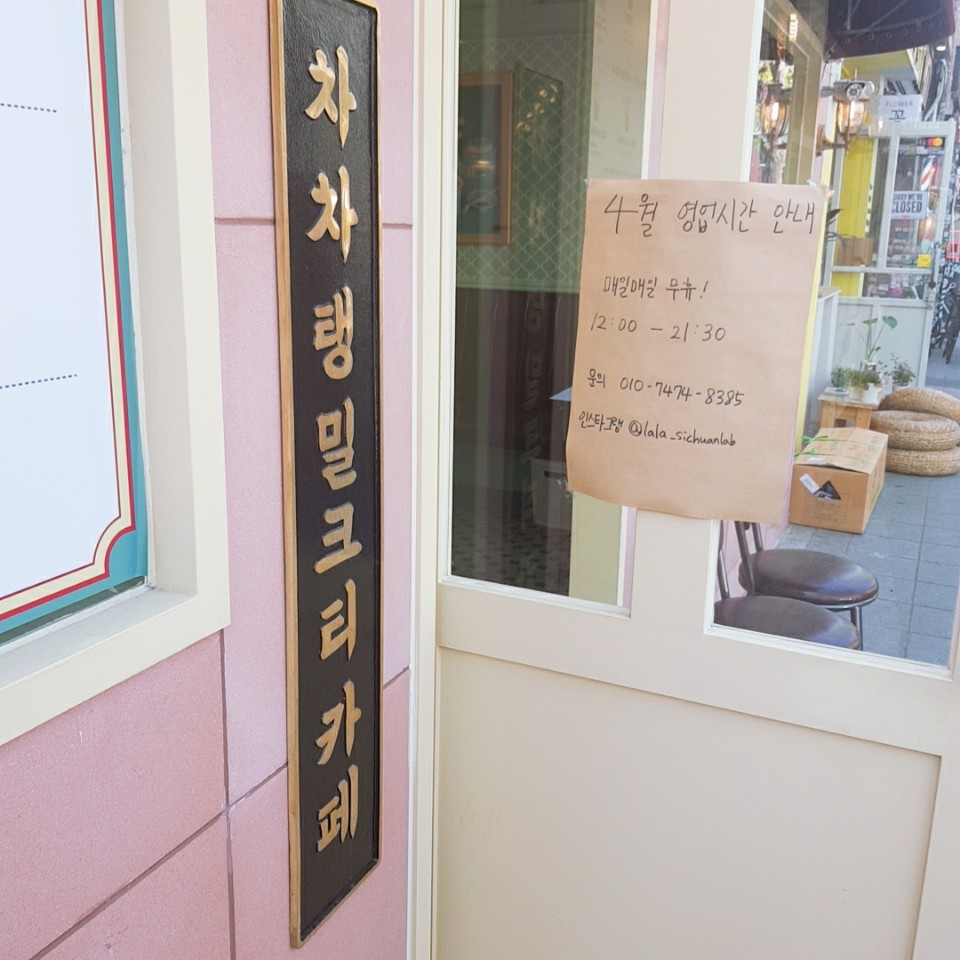 차차탱밀크티카페
4월 영업시간 안내
매일매일 무휴!
12:00 - 21:30
문의 010-7474-8385
인스타그램 @lala_sichuanlab
FLOWER
꼬
CLOSED